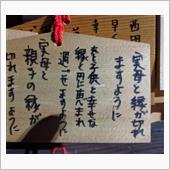 実母と縁が切れ
ますように
夫と子供と幸せな
縁と円に恵まれ
過ごせますように
実母と
親子の縁が
切れますように
西田
早く